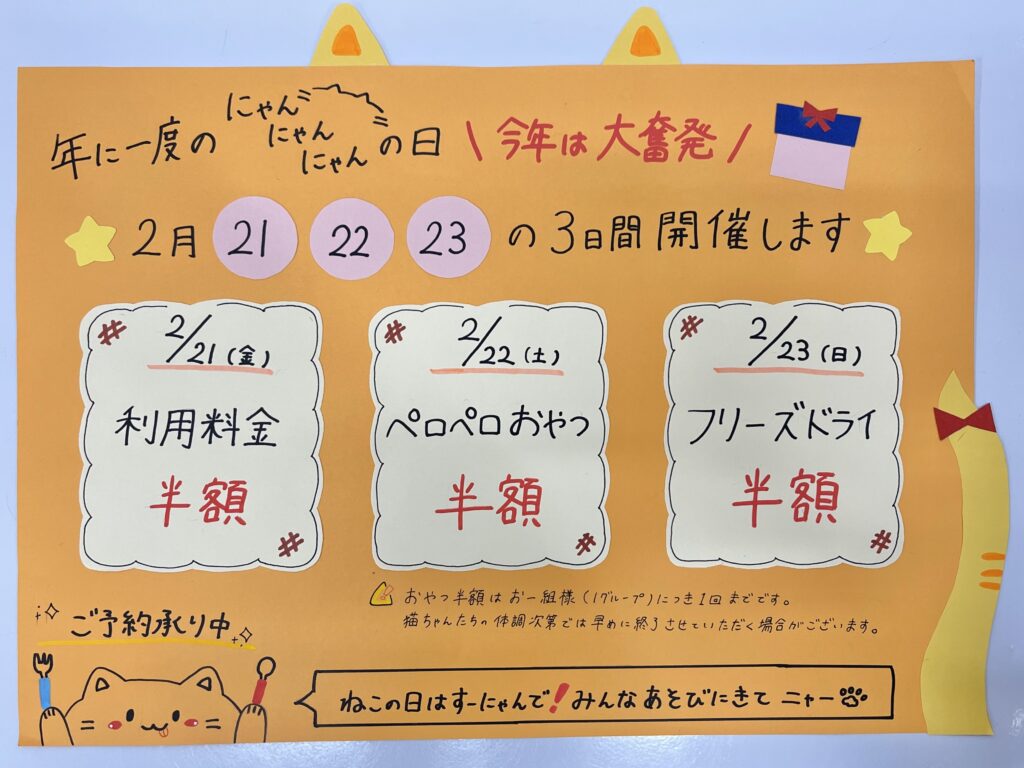 年に一度の にゃん にゃん にゃん の日 \ 今年は大奮発 /
2月 21 22 23 の3日間開催します
2/21(金)
利用料金
半額
2/22(土)
ペロペロおやつ
半額
2/23(日)
フリーズドライ
半額
おやつ半額はお一組様(1グループ)につき1回までです。
猫ちゃんたちの体調次第では早めに終了させていただく場合がございます。
ご予約承り中
ねこの日はすーにゃんで!みんなあそびにきてニャー